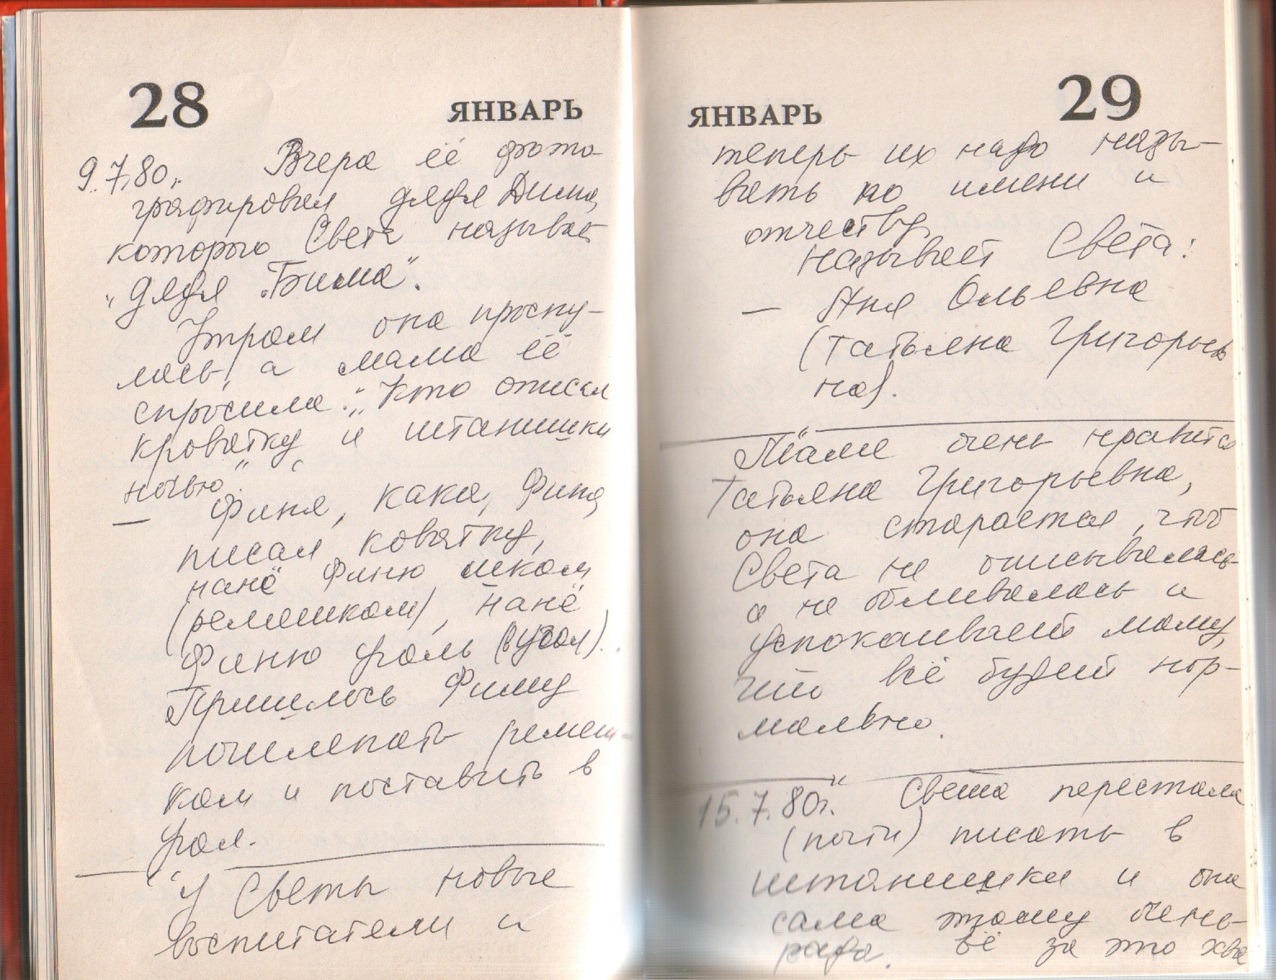 28 ЯНВАРЬ
9.7.80г. Вчера её фото
графировал дядя Дима,
которого Света называет
"дядя "Бима".
Утром она просну-
лась, а мама её
спросила: "Кто описал
кроватку и штанишки
ночью"
— Финя, кака, Финя,
писал коватку,
нанё Финю иском
(ремешком), нанё
Финю уголь (в угол).
Пришлось Фиму
пошлепать ремеш-
ком и поставить в
угол.
У Светы новые
воспитатели и
ЯНВАРЬ 29
теперь их надо назы-
вать по имени и
отчеству.
Называет Света:
— Аня Ольевна
(Татьяна Григорьев
на).
Маме очень нравится
Татьяна Григорьевна,
она старается, чтоб
Света не описывалась
и не обливалась и
успокаивает маму,
что всё будет нор-
мально.
15.7.80г. Света перестала
(почти) писать в
штанишки и она
сама этому очень
рада. Её за это хва